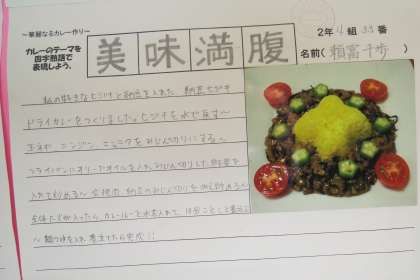 ～華麗なるカレー作り～
2年4組33番
カレーのテーマを
四字熟語で
表現しよう。
美味満腹
名前(
私の好きなヒジキと納豆を入れた、納豆ヒジキ
ドライカレーをつくりました。ヒジキを水で戻す～
玉ネギ、ニンジン、ニンニクをみじん切りにする～
フライパンにオリーブオイルを入れみじん切りした野菜を
入れて炒める～
全体に火が入ったら、カレールーと水を入れて、
入れ 煮立てたら完成!!